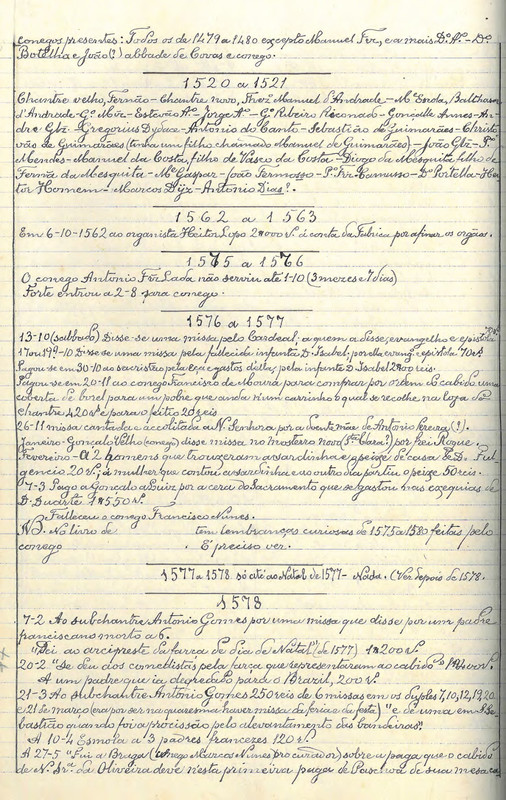 conegos presentes: Todos os de 1479 a 1480 excepto Manuel Frz, e a mais D. A.º - D.º
Botelha e João (?) abbade de Covas e conego.
1520 a 1521
Chantre velho, Fernão - Chantre novo, Manuel d'Andrade - M.el Serda, Balthasar
d'Andrade - G.º - Estevão A.º - Jorge A.º - G.º Ribeiro - Gonçalle Annes - An-
dre Glz - Gregorius Dydace - Antonio do Canto - Sebastião de Guimarães - Christo
vão de Guimarães (tinha um filho chamado Manuel de Guimarães) - João Glz - P.º
Mendes - Manuel da Costa, filho de Vasco da Costa - Diogo da Mesquita filho de
Fernã da Mesquita - M.el Gaspar - João Fermosso - P.º Frz Camusso - D.º Portella - Hei
tor Homem - Marcos Dyz - Antonio Dias?.
1562 a 1563
Em 6-10-1562 ao organista Heitor Lopo 2#000 r. á conta da Fabrica por afinar os orgãos.
1575 a 1576
O conego Antonio Frz Lada não serviu até 1-10 (3 mezes e 7 dias)
Forte entrou a 2-8 para conego.
1576 a 1577
13-10 (sabbado) Disse-se uma missa pelo Cardeal, a quem a disse, evangelho e epistola
17 ou 19-10 Disse se uma missa pela fallecida infanta D. Isabel, por ella evang. e epistola 70 r.
Pagou se em 30-10 ao sacristão pela eça e gastos della, pela infanta D. Isabel 2#400 reis.
Pagou se em 20-11 ao conego Francisco de Moura para comprar por ordem do cabido uma
coberta de borel para um pobre que anda n'um carrinho o qual se recolhe na loja do
chantre 420 r. e para o feitio 20 reis
26-11 missa cantada e acolitada a N. Senhora por a doente mãe de Antonio Pereira (?).
Janeiro Gonçalo Velho (conego) disse missa no mosteiro novo (Sta Clara?) por frei Roque.
Fevereiro - A 2 homens que trouzeram a sardinha e peixe de casa de D. Ful
gencio 20 r., á mulher que contou a sardinha e ao outro dia partiu o peixe 50 reis.
7-3 Pago a Gonçalo a Luiz por a cera do Sacramento que se gastou nas exequias de
D. Duarte 1#550 r.
Falleceu o conego Francisco Nunes.
NB. No livro de tem lembranças curiosas de 1575 a 1580 feitas pelo
conego É preciso ver.
1577 a 1578 só até ao Natal de 1577 - Nada. (Ver depois de 1578.
1578
7-2 Ao subchantre Antonio Gomes por uma missa que disse por um padre
franciscano morto a 6.
"Dei ao arcipreste da farça de dia de Natal" (de 1577) 1#200 r.
20-2 "Se deu aos comediistas pela farça que representaram ao cabido"
A um padre que ia degredado para o Brazil, 200 r.
21-3 Ao subchantre Antonio Gomes 250 reis de 6 missas em os duples 7, 10, 12, 19, 20
e 21 de março (era por ser na quaresma haver missa da feria e da festa) "e de uma em S. Se
bastião quando foi a procissão pelo alevantamento das bandeiras".
A 10-4 Esmola a 3 padres francezes 120 r.
A 27-5 "Fui a Braga (Conego Marcos Nunes procurador) sobre a paga que o cabido
de N. Sr.ª da Oliveira deve n'esta primeira paga de Paschoa de sua mesa ca